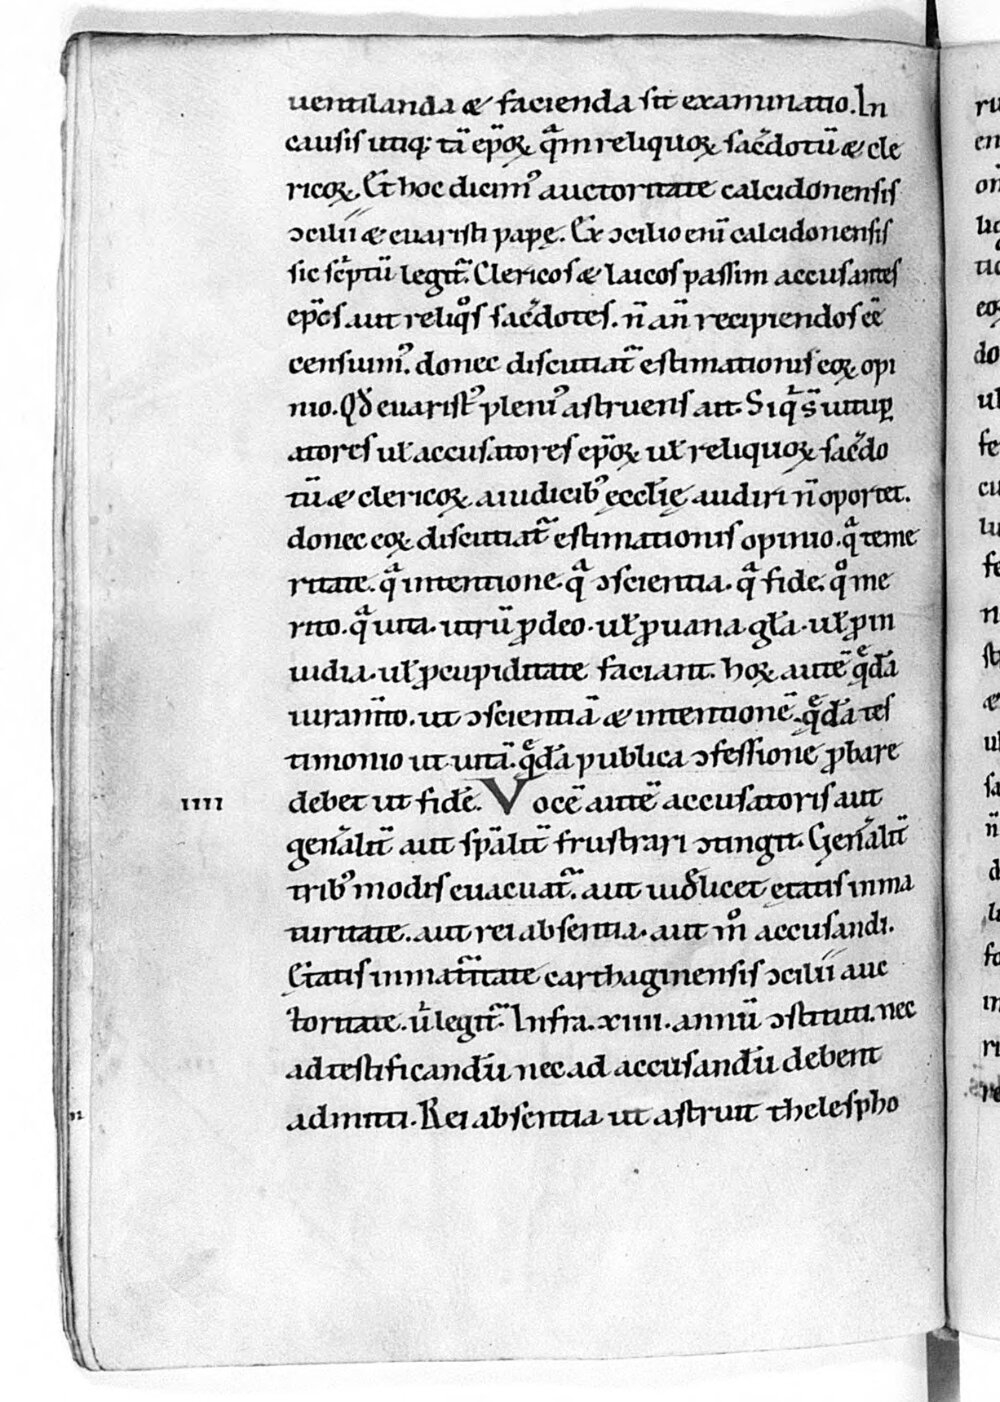 uentilanda & facienda sit examinatio. In
causis utiq; tā ep̄oꝝ qͣm reliquoꝝ sac̓dotū & cle
ricoꝝ. Et hoc dicim᷒ auctoritate calcidonensis
ↄcilii & euaristi papę. Ex ↄcilio enī calcidonensis
sic sc̓ptū legit᷑. Clericos & laicos passim accusantes
ep̄os aut reliqͦs sac̓dotes. n̄ an̄ recipiendos eē
censuim᷒. donec discutiat᷑ estimationis eoꝝ opi
nio. Qd̄ euarist᷒ pleni᷒ astruens ait. Siqͥ s̄ uitup̱
atores ul̄ accusatores ep̄oꝝ ul̄ reliquoꝝ sac̓do
tū & clericoꝝ. a iudicib᷒ eccl̄ię audiri n̄ oportet.
donec eoꝝ discutiat᷑ estimationis opinio. qͣ teme
ritate. qͣ intentione. qͣ ↄscientia. qͣ fide. qͦ me
rito. qͣ uita. utrū ꝓ deo. ul̄ ꝓ uana gl̄a. ul̄ ꝓ in
uidia. ul̄ ꝓ cupiditate faciant. hoꝝ autē qͤdā
iuram̄to. ut ↄscientiā & intentionē. qͤdā tes
timonio ut uitā. qͤdā publica ↄfessione ꝓbare
debet ut fidē. Vocē autē accusatoris aut
IIII
gen̓alit̄ aut sp̄alit̄ frustrari ↄtingit. Gen̓alit̄
trib᷒ modis euacuat᷑. aut uid̄licet etatis inma
turitate. aut rei absentia. aut mͦ accusandi.
Etatis inmat᷑itate carthaginensis ↄcilii auc
toritate. u̓ legit᷑. Infra .xiiii. annū ↄstituti. nec
ad testificandū nec ad accusandū debent
admitti. Rei absentia ut astruit thelespho